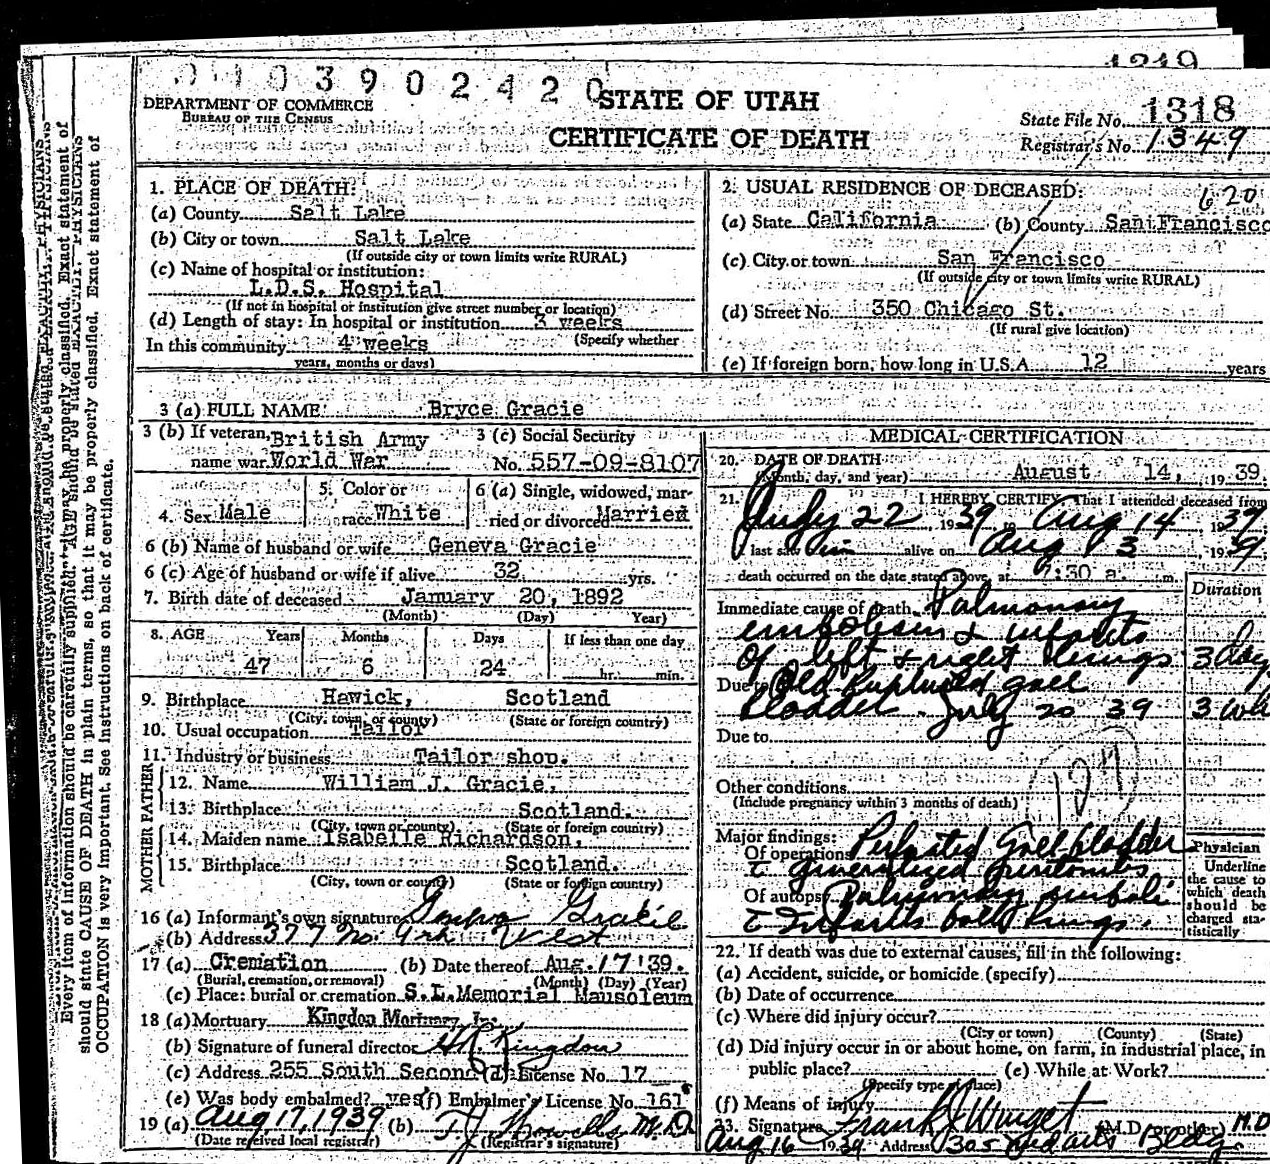 1219
0103902420
STATE OF UTAH
CERTIFICATE OF DEATH
DEPARTMENT OF COMMERCE
BUREAU OF THE CENSUS
State File No. 1318
Registrar's No. 1349
1. PLACE OF DEATH:
(a) County Salt Lake
(b) City or town Salt Lake
(If outside city or town limits write RURAL)
(c) Name of hospital or institution:
L.D.S. Hospital
(If not in hospital or institution give street number or location)
(d) Length of stay: In hospital or institution 3 weeks
(Specify whether
In this community 4 weeks
years, months or days)
2. USUAL RESIDENCE OF DECEASED:
620
(a) State California (b) County San Francisco
(c) City or town San Francisco
(If outside city or town limits write RURAL)
(d) Street No. 350 Chicago St.
(If rural give location)
(e) If foreign born, how long in U.S.A. 12 years
3 (a) FULL NAME Bryce Gracie
3 (b) If veteran, British Army
name war World War
3 (c) Social Security
No. 557-09-8107
4. Sex Male
5. Color or
race White
6 (a) Single, widowed, mar-
ried or divorced Married
6 (b) Name of husband or wife Geneva Gracie
6 (c) Age of husband or wife if alive 32 yrs.
7. Birth date of deceased January 20, 1892
(Month) (Day) Year)
8. AGE Years Months Days If less than one day
47 6 24 hr. min.
9. Birthplace Hawick, Scotland
(City, town, or county) (State or foreign country)
10. Usual occupation Tailor
11. Industry or business Tailor shop.
FATHER
12. Name William J. Gracie,
13. Birthplace Scotland.
(City, town or county) (State or foreign country)
MOTHER
14. Maiden name Isabelle Richardson,
15. Birthplace Scotland.
(City, town or county) (State or foreign country)
16 (a) Informant's own signature Geneva Gracie
(b) Address 377 No. 4th West
17 (a) Cremation (b) Date thereof Aug. 17 '39.
(Burial, cremation, or removal) (Month) (Day) (Year)
(c) Place: burial or cremation S.L. Memorial Mausoleum
18 (a) Mortuary Kingdon Mortuary Inc
(b) Signature of funeral director Kingdon
(c) Address 255 South Second (d) License No. 17
(e) Was body embalmed? yes (f) Embalmer's License No. 161
19 (a) Aug 17, 1939 (b) T. J. Howells M.D.
(Date received local registrar) (Registrar's signature)
MEDICAL CERTIFICATION
20. DATE OF DEATH
(Month, day, and year) August 14, 19 39.
21. I HEREBY CERTIFY That I attended deceased from
July 22 1939 to Aug 14 1939
I last saw him alive on Aug 13, 1939.
death occurred on the date stated above, at :30 a. m.
Duration
Immediate cause of death Pulmonary
embolism & infarcts
of left & right lungs 3 days
Due to Old Ruptured gall
bladder July 20 39 3 wk
Due to
127
Other conditions
(Include pregnancy within 3 months of death)
Major findings:
Of operations Perforated Gallbladder
c generalized peritonitis
Of autopsy Pulmonary emboli
c Infarcts both lungs.
Physician
Underline
the cause to
which death
should be
charged sta-
tistically
22. If death was due to external causes, fill in the following:
(a) Accident, suicide, or homicide (specify)
(b) Date of occurrence
(c) Where did injury occur?
(City or town) (County) (State)
(d) Did injury occur in or about home, on farm, in industrial place, in
public place? (e) While at Work?
(Specify type of place)
(f) Means of injury
23. Signature Frank J. Winget (M.D. or other) M.D
Aug 16 1939 Address 305 Med arts Bldg.
Every item of information should be carefully supplied. AGE should be stated EXACTLY. PHYSICIANS
should state CAUSE OF DEATH in plain terms, so that it may be properly classified. Exact statement of
OCCUPATION is very important. See instructions on back of certificate.